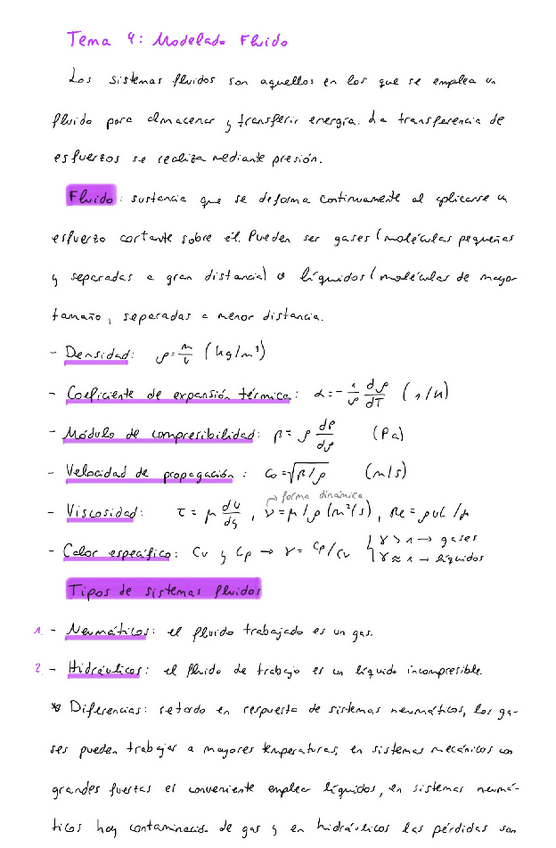 Tema 4: Modelado Fluido
Los sistemas fluidos son aquellos en los que se emplea un
fluido para almacenar y transferir energía. La transferencia de
esfuerzos se realiza mediante presión.
Fluido: sustancia que se deforma continuamente al aplicarse un
esfuerzo cortante sobre él. Pueden ser gases (moléculas pequeñas
y separadas a gran distancia) o líquidos (moléculas de mayor
tamaño, separadas a menor distancia.
- Densidad: ρ = m/v (kg/m³)
- Coeficiente de expansión térmica: α = - 1/ρ dρ/dT (1/K)
- Módulo de compresibilidad: β = ρ dP/dρ (Pa)
- Velocidad de propagación: C₀ = √β/ρ (m/s)
→ forma dinámica
- Viscosidad: τ = μ dv/dy, ν = μ/ρ (m²/s), Re = ρvL/μ
- Calor específico: Cv y Cp → γ = Cp/Cv { γ > 1 → gases
γ ≈ 1 → líquidos
Tipos de sistemas fluidos
1. - Neumáticos: el fluido trabajado es un gas.
2. - Hidráulicos: el fluido de trabajo es un líquido incompresible.
* Diferencias: retardo en respuesta de sistemas neumáticos, los ga-
ses pueden trabajar a mayores temperaturas, en sistemas mecánicos con
grandes fuerzas es conveniente emplear líquidos, en sistemas neumá-
ticos hay contaminación de gas y en hidráulicos las pérdidas son